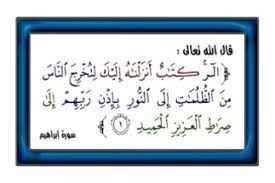 قال الله تعالى :
﴿ الٓرۚ كِتَٰبٌ أَنزَلْنَٰهُ إِلَيْكَ لِتُخْرِجَ ٱلنَّاسَ
مِنَ ٱلظُّلُمَٰتِ إِلَى ٱلنُّورِ بِإِذْنِ رَبِّهِمْ إِلَىٰ
صِرَٰطِ ٱلْعَزِيزِ ٱلْحَمِيدِ ١ ﴾
سورة إبراهيم